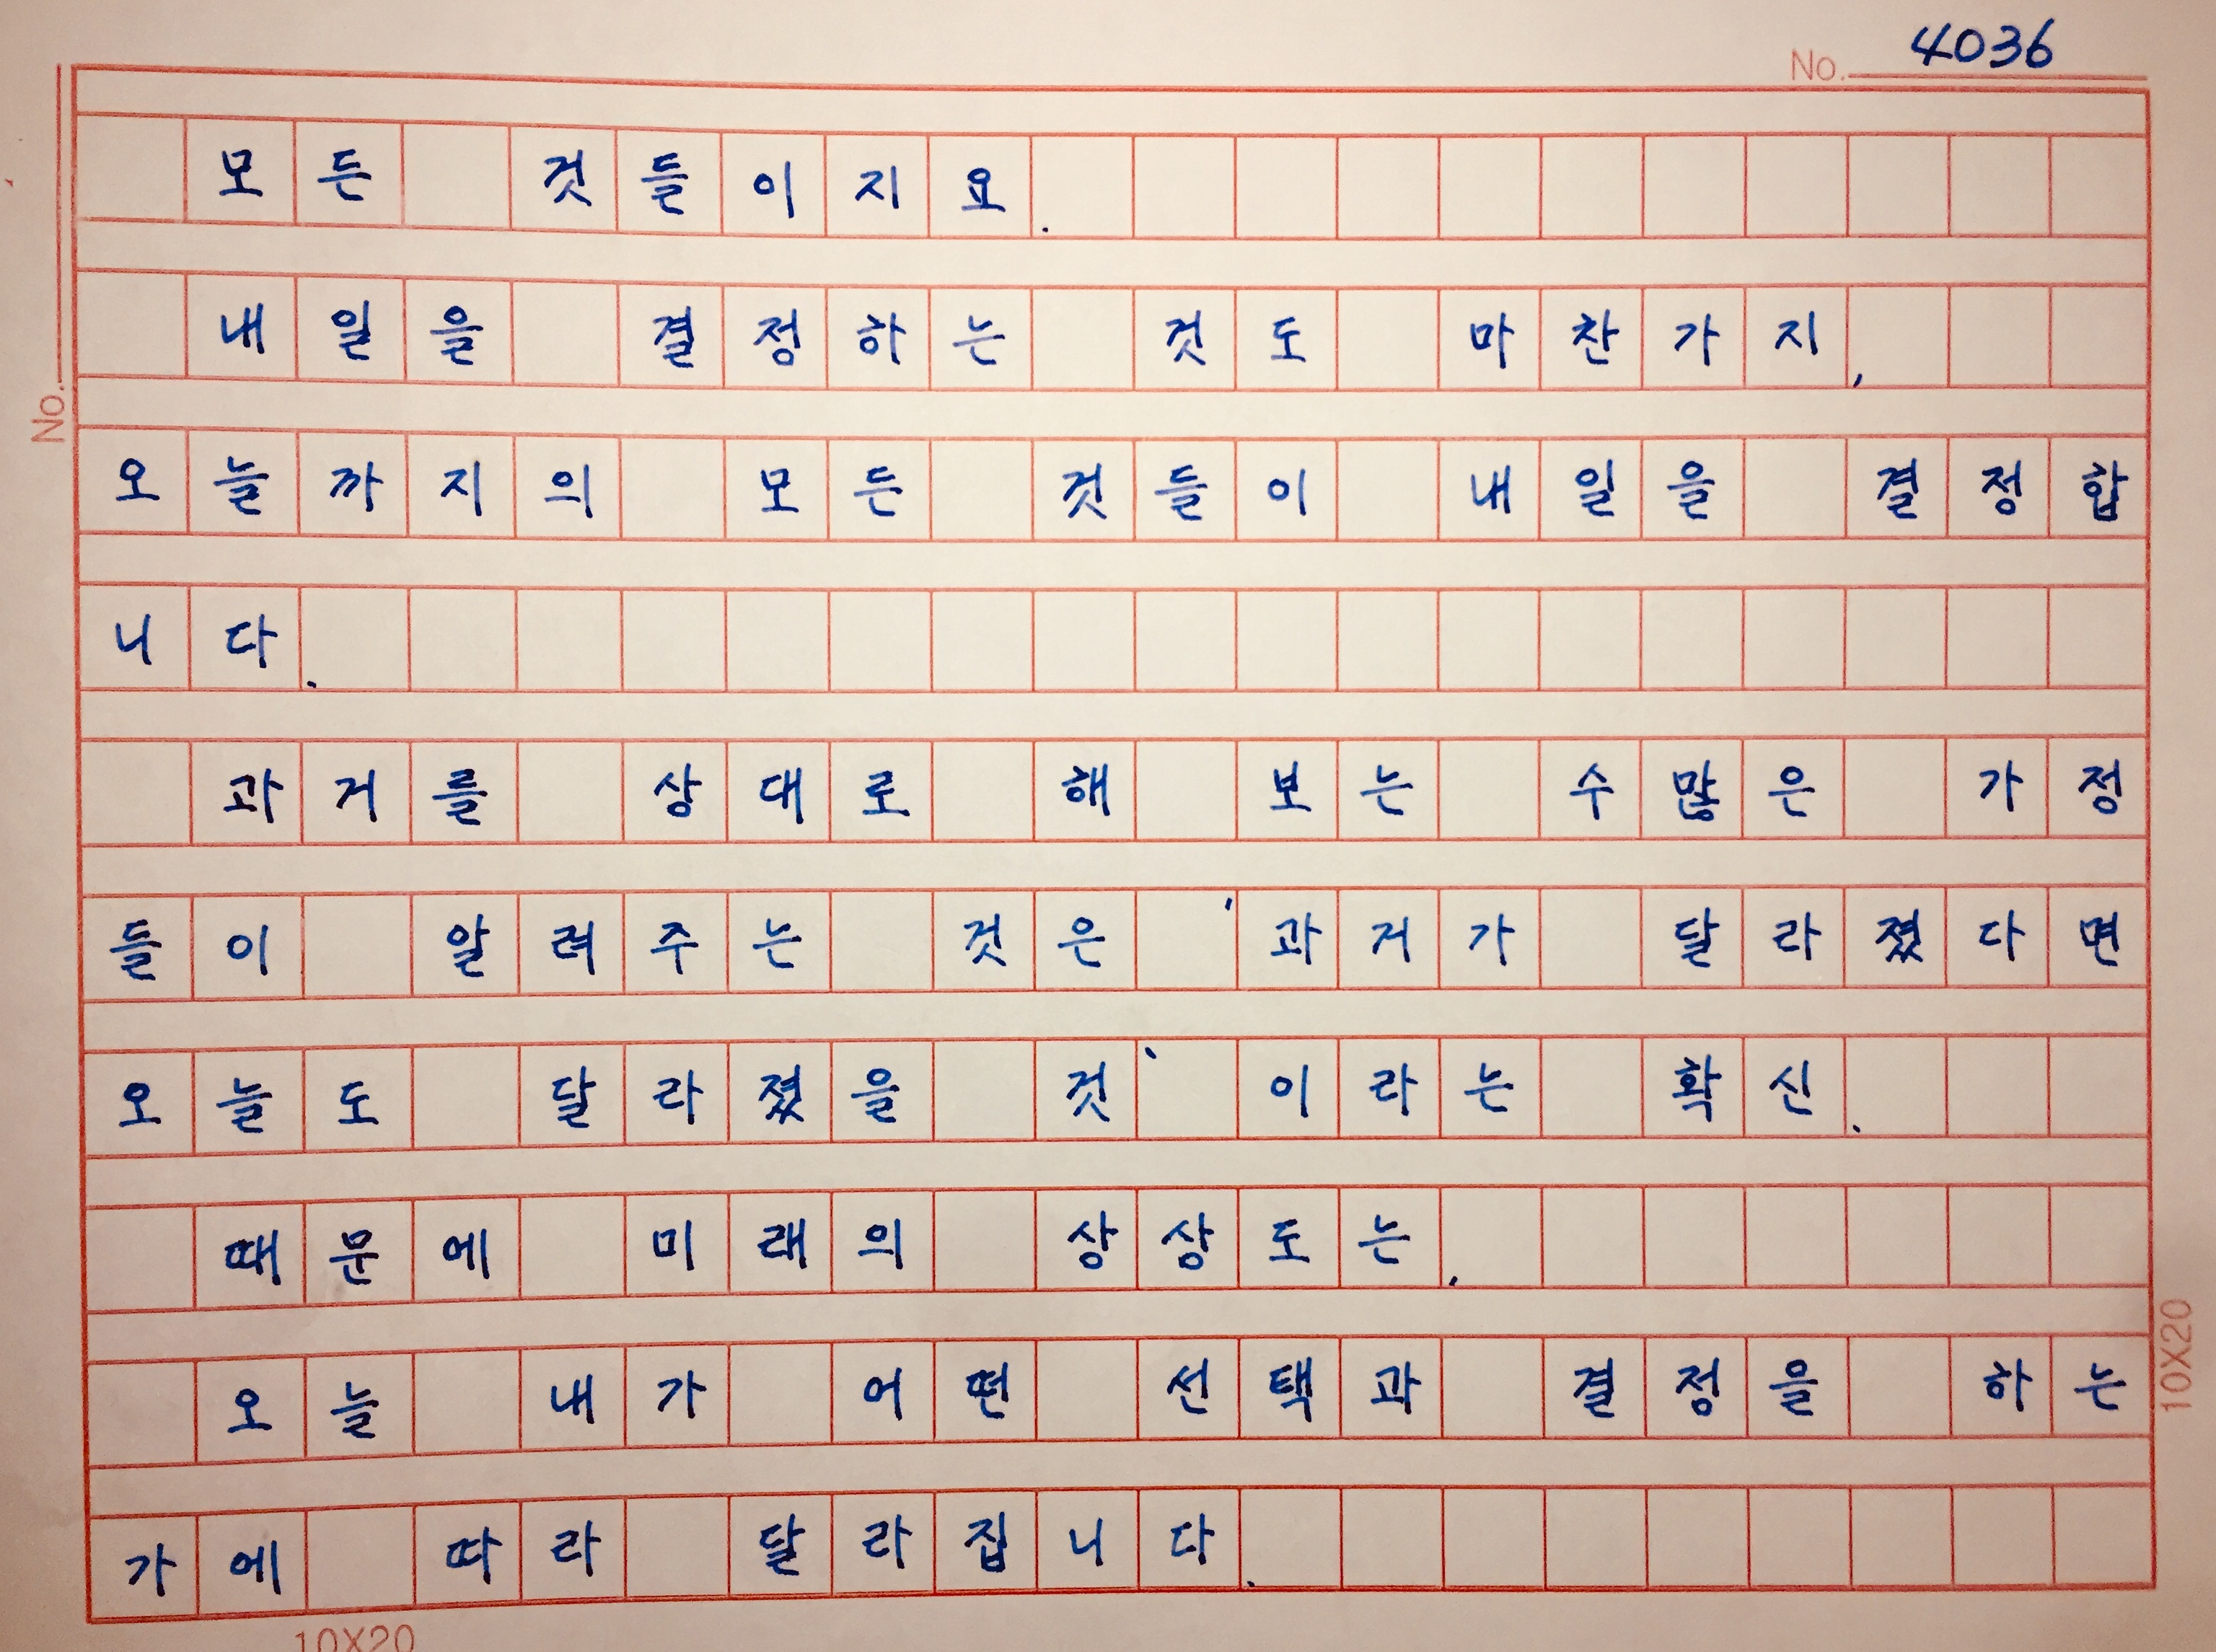 No. 4036
모든 것들이지요.
내일을 결정하는 것도 마찬가지,
오늘까지의 모든 것들이 내일을 결정합
니다.
과거를 상대로 해 보는 수많은 가정
들이 알려주는 것은 '과거가 달라졌다면
오늘도 달라졌을 것'이라는 확신.
때문에 미래의 상상도는,
오늘 내가 어떤 선택과 결정을 하는
가에 따라 달라집니다.
No.
10X20
10X20